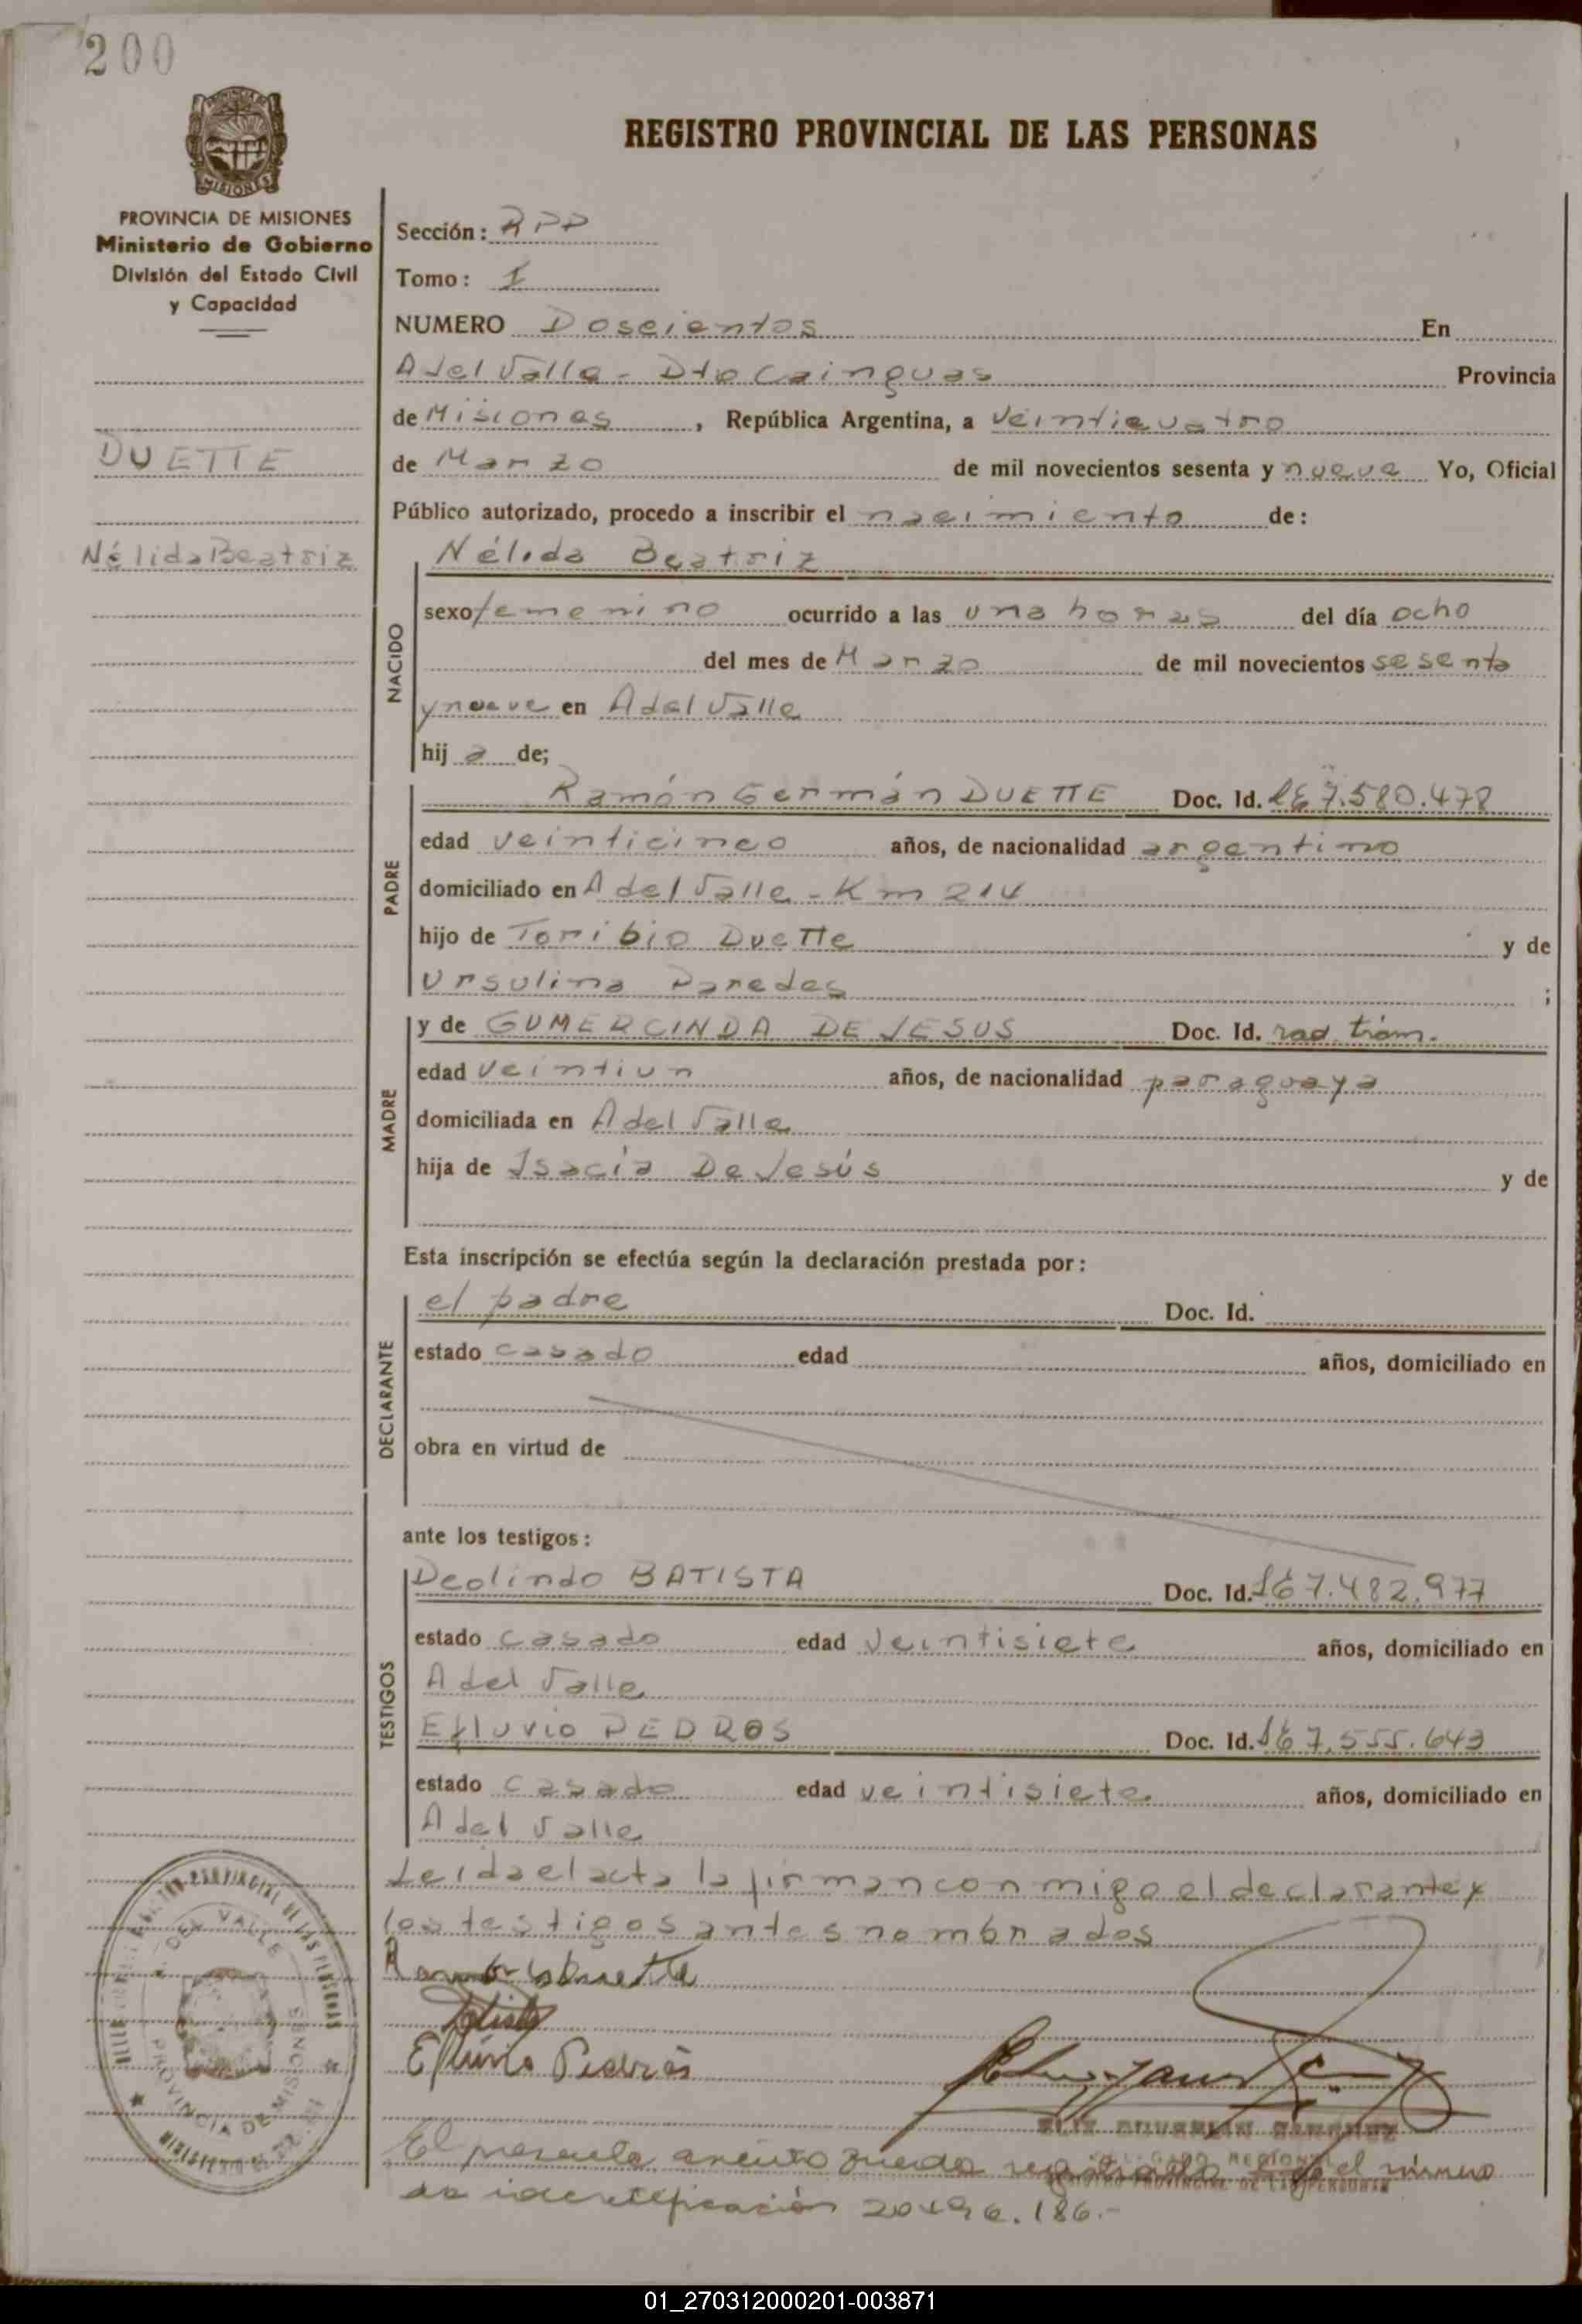 200
REGISTRO PROVINCIAL DE LAS PERSONAS
MISIONES
PROVINCIA DE MISIONES
Ministerio de Gobierno
División del Estado Civil
y Capacidad
DUETTE
Nélida Beatriz
Sección: RPP
Tomo: I
NUMERO Doscientos En
A del Valle - Dto Cainguas Provincia
de Misiones, República Argentina, a veinticuatro
de Marzo de mil novecientos sesenta y nueve Yo, Oficial
Público autorizado, procedo a inscribir el nacimiento de:
NACIDO
Nélida Beatriz
sexo femenino ocurrido a las una horas del día ocho
del mes de Marzo de mil novecientos sesenta
y nueve en A del Valle
hija de;
PADRE
Ramón Germán DUETTE Doc. Id. 7.580.478
edad veinticinco años, de nacionalidad argentino
domiciliado en A del Valle - Km 214
hijo de Toribio Duette y de
Ursulina Paredes ;
MADRE
y de GUMERCINDA DE JESUS Doc. Id. rad. trám.
edad veintiun años, de nacionalidad paraguaya
domiciliada en A del Valle
hija de Isacia De Jesús y de
Esta inscripción se efectúa según la declaración prestada por:
DECLARANTE
el padre Doc. Id.
estado casado edad años, domiciliado en
obra en virtud de
ante los testigos:
TESTIGOS
Deolindo BATISTA Doc. Id. 7.482.977
estado casado edad veintisiete años, domiciliado en
A del Valle
Efluvio PEDROS Doc. Id. 7.555.643
estado casado edad veintisiete años, domiciliado en
A del Valle
Leida el acta la firman conmigo el declarante y
los testigos antes nombrados
Efluvio Pedros
A. DEL VALLE
PROVINCIA DE MISIONES
REGISTRO PROVINCIAL DE LAS PERSONAS
El presente asiento queda registrado bajo el número
de identificación
01_270312000201-003871